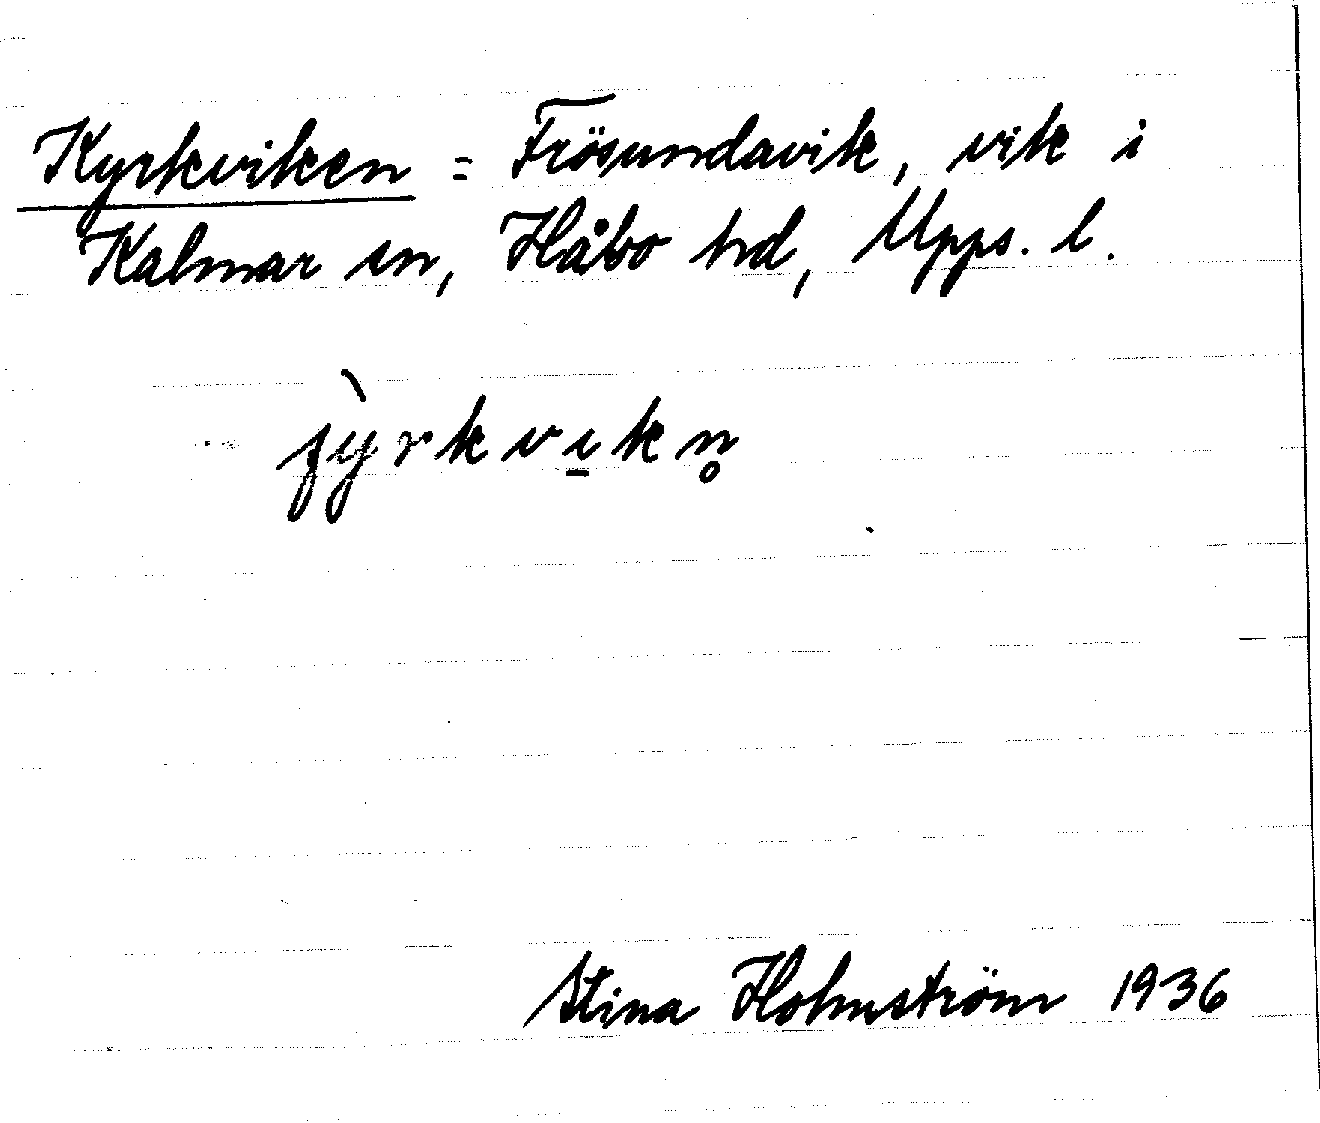 Kyrkviken = Frösundavik, vik i
Kalmar sn, Håbo hd, Upps. l.
fỳrkvi̲kn̥
Stina Holmström 1936